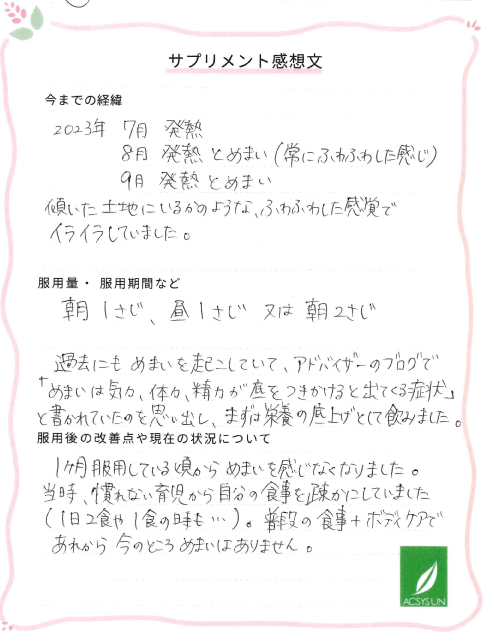 サプリメント感想文
今までの経緯
2023年 7月 発熱
8月 発熱とめまい(常にふわふわした感じ)
9月 発熱とめまい
傾いた土地にいるかのような、ふわふわした感覚で
イライラしていました。
服用量・服用期間など
朝1さじ、昼1さじ 又は 朝2さじ
過去にもめまいを起こしていて、アドバイザーのブログで
「めまいは気力、体力、精力が底をつきかけると出てくる症状」
と書かれていたのを思い出し、まずは栄養の底上げとして飲みました。
服用後の改善点や現在の状況について
1ヶ月服用している頃からめまいを感じなくなりました。
当時、慣れない育児から自分の食事を疎かにしていました
(1日2食や1食の日も…)。普段の食事+ボディケアで
あれから今のところめまいはありません。
ACSYSUN